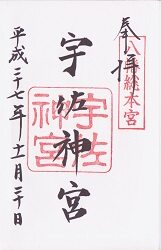 奉拝
八幡総本宮
宇佐神宮
宇佐
神宮
平成二十七年十一月二十日